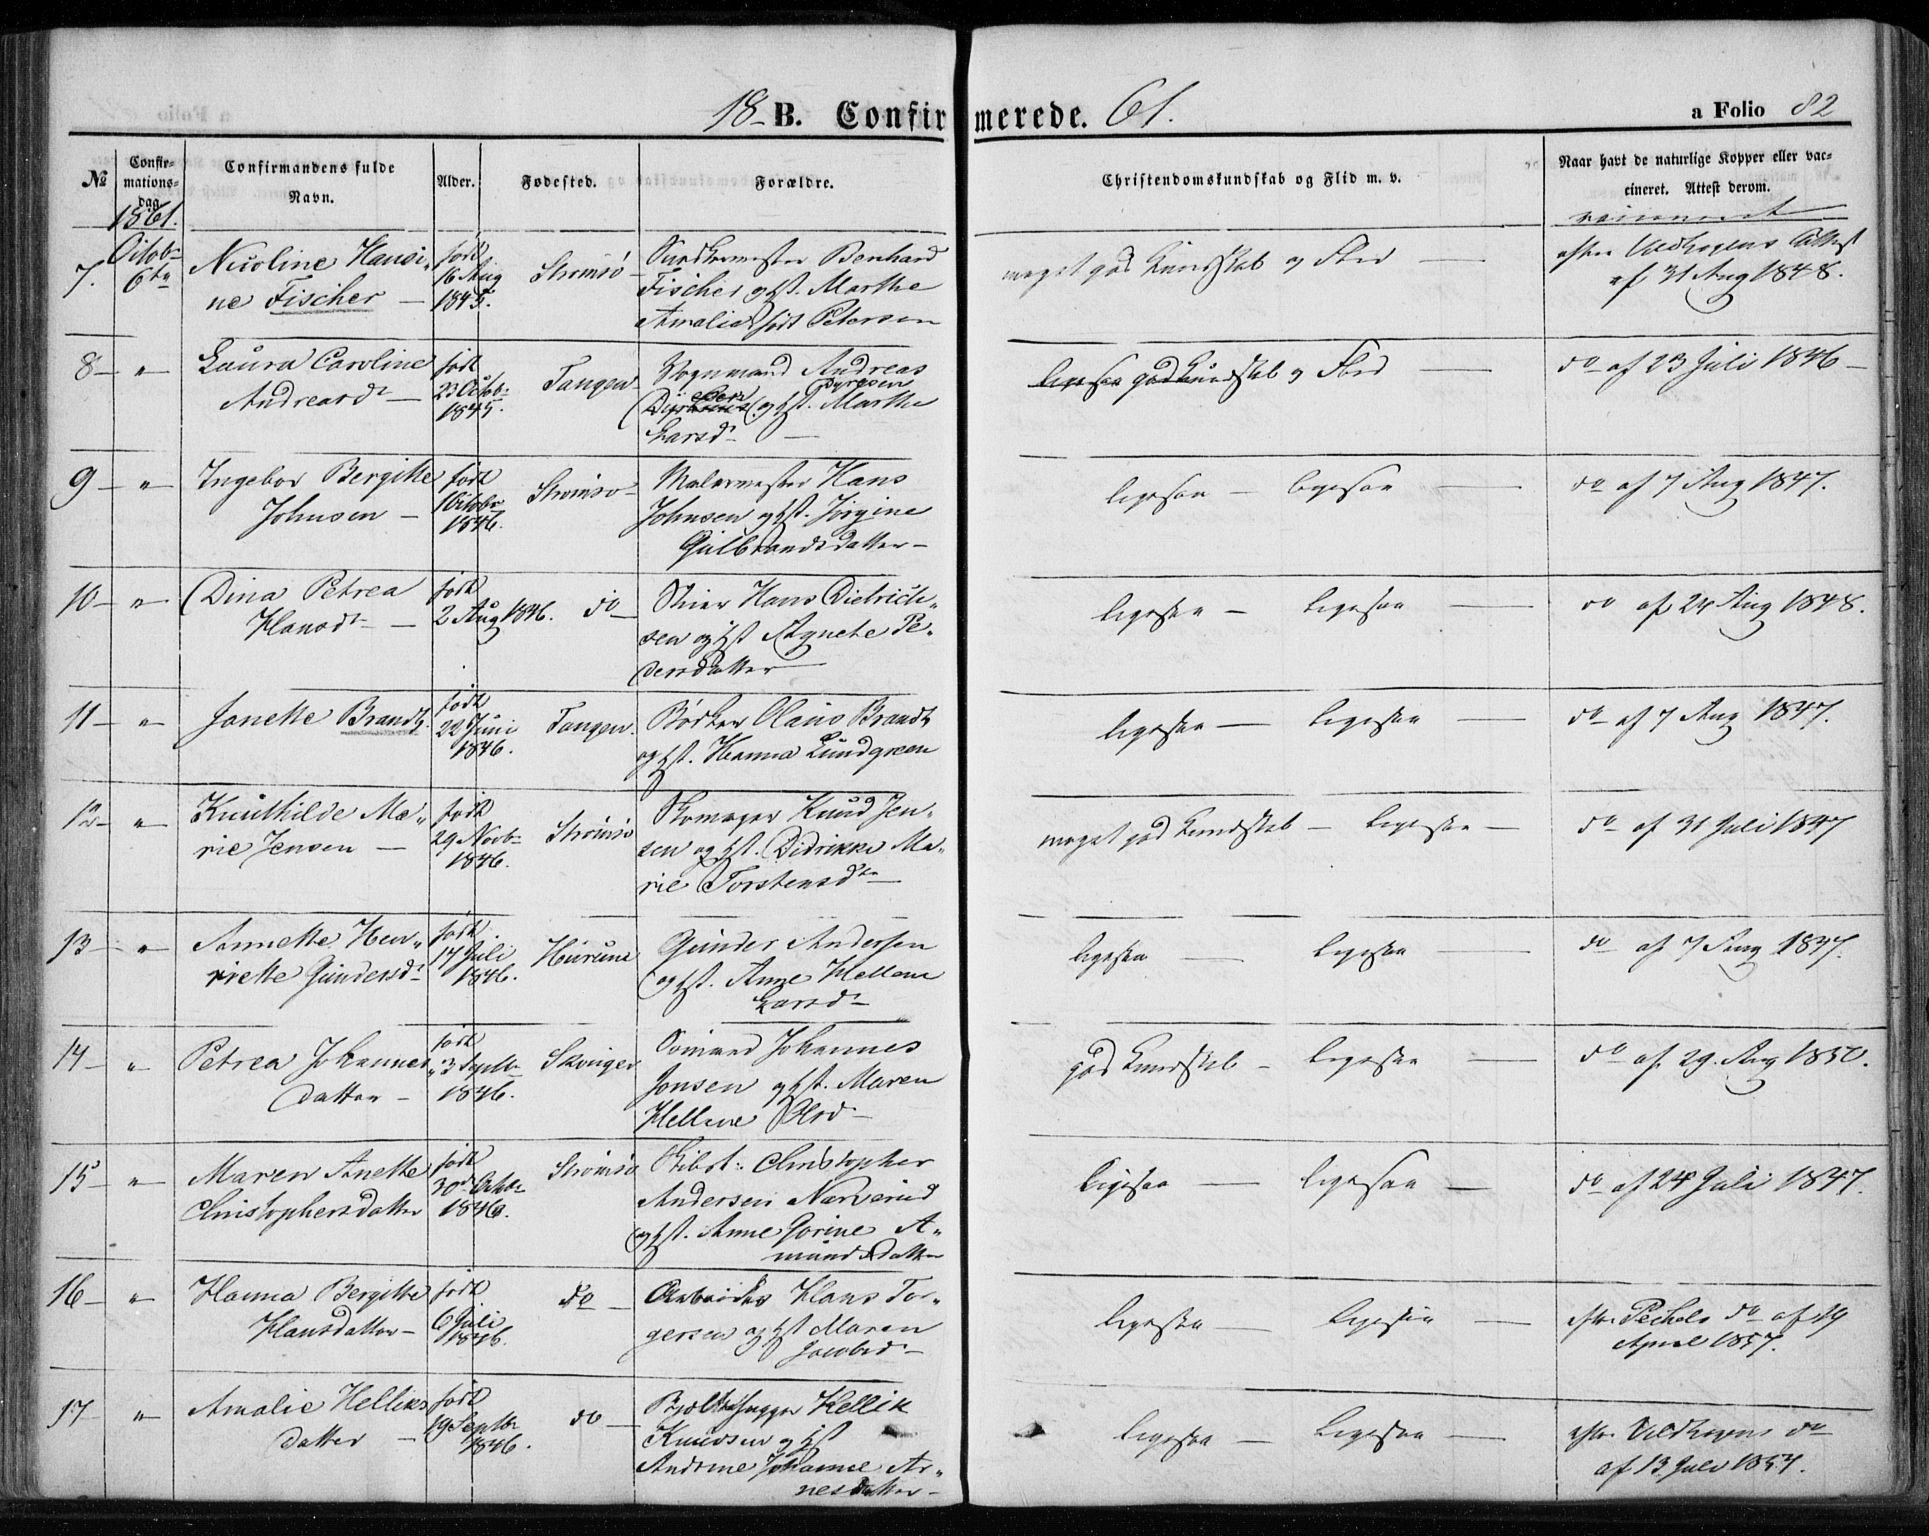 18- B. Confirmerede. 61.
a Folio 82
№
Confir-
mations-
dag.
Confirmandens fulde
Navn.
Alder.
Fødested.
Forældre.
Christendomskundskab og Flid m. v.
Naar havt de naturlige Kopper eller vac-
cineret. Attest derom.
1861.
vaccineret
7.
Octob-
6te
Nicoline Hansi-
ne Fischer —
født
16 Aug
1845.
Strømsø
Bernhard
Fischer og Hst. Marthe
Amalia født Petersen
meget god Kundskab og Flid —
efter Veldhagens Attest
af 31 Aug 1848.
8 — "
Laura Caroline
Andreasdr —
født
23 Octob-
1845.
Tangen
Vognmand Andreas
Dyresen
og Hst. Marthe
Larsdr —
ligesaa god Kundskab og Flid
do af 23 Juli 1846 —
9 — "
Ingebor Bergitte
Johnsen —
født
1 Octobr
1846.
Strømsø —
Malermester Hans
Johnsen og Hst. Jørgine
Gulbrandsdatter —
ligesaa — ligesaa —
do af 7 Aug 1847.
10 — "
Dina Petrea
Hansdr —
født
2 Aug 1846.
do —
Hans Dietrich-
sen og Hst Agnete Pe-
dersdatter
ligesaa — ligesaa —
do af 24 Aug 1848.
11 — "
Janette Brandt.
født
22 Juni
1846.
Tangen.
Bødker Olaus Brandt
og Hst. Hanna Lundgreen
ligesaa — ligesaa —
do af 7 Aug 1847.
12 — "
Knuthilde Ma-
rie Jensen —
født
29 Novb-
1846.
Strømsø
Skomager Knud Jen-
sen og Hst. Didrikke Ma-
rie Torstensdtr —
meget god Kundskab — ligesaa —
do af 31 Juli 1847
13 — "
Annette Hen-
riette Gundersdr
født
17 Juli
1846.
Hurum
Gunder Andersen
og Hst. Anne Hellene
Larsdr
ligesaa — ligesaa —
do af 7 Aug 1847.
14 — "
Petrea Johannes-
datter —
født
3 Septb-
1846.
Skouger
Sømand Johannes
Jonsen og Hst. Maren
Hellene Olsdr
god Kundskab — ligesaa —
do af 29. Aug 1850.
15 — "
Maren Anette
Christophersdatter
født
30
1846.
Strømsø
Christopher
Andersen Narverud
og Hst. Anne Gorine A-
mundsdatter
ligesaa — ligesaa —
do af 24 Juli 1847.
16 — "
Hanna Bergitte
Hansdatter —
født
6 Juli
1846.
do —
Arbeider Hans Tor-
gersen og Hst Maren
Jacobsdr
ligesaa — ligesaa —
efter Pechels do af 19
April 1857.
17 — "
Amalie Helliks
datter —
født
19 Septbr
1846.
do —
Bjelkehugger Hellik
Knudsen og Hst
Andrine Johanne Ar-
nesdatter —
ligesaa — ligesaa —
efter Veldhagens do
af 13 Juli 1854.